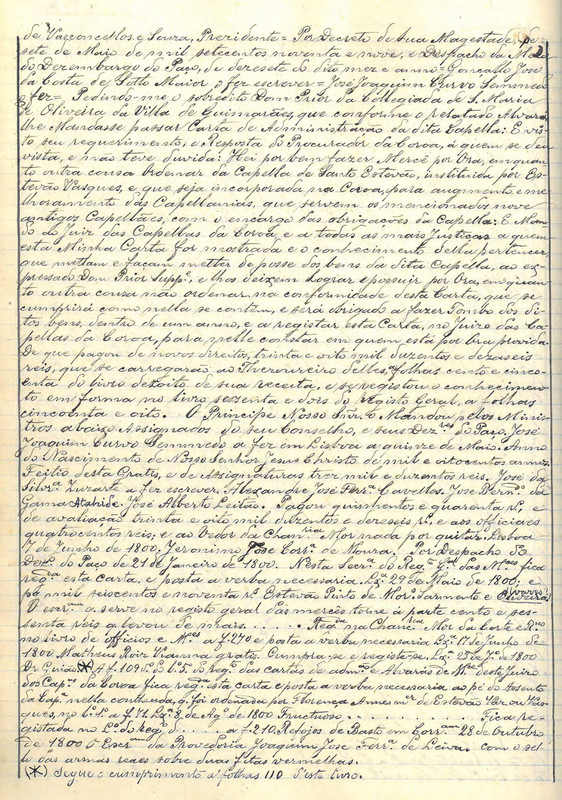 de Vasconcellos e Souza, Prezidente = Por Decreto de Sua Magestade, de
sete de Maio de mil setecentos noventa e nove, e Despacho da Meza
do Dezembargo do Paço, de dezesete do dito mez e anno = Gonçallo José
da Costa de Sotto Maior o fez escrever = José Joaquim Curvo Semmedo
a fez = Pedindo-me o sobredito Dom Prior da Collegiada de S. Maria
de Oliveira da Villa de Guimarães, que conforme o relatado Alvará
lhe Mandasse passar Carta de Administração da dita Capella: E vis
to seu requerimento, e Resposta do Procurador da Coroa, á quem se deu
vista, e não teve duvida: Hei por bem fazer Mercê por Ora, emquan
to outra cousa Ordenar da Capella de Santo Estevão, instituida por Es-
tevão Vasques, e que seja incorporada na Coroa, para augmento e me
lhoramento das Capellanias, que servem os mencionados nove
antigos Capellães, com o encargo das obrigações da Capella: E Man
do ao Juiz das Capellas da Coroa, e a todas as mais Justiças a quem
esta Minha Carta for mostrada e o conhecimento della pertencer,
que mettam e façam metter de posse dos bens da dita Capella, ao ex
pressado Dom Prior Suppe., e lhos deixem lograr e possuir por Ora, emquan
to outra cousa não ordenar, na conformidade desta Carta, que se
cumprirá como nella se contem, e será obrigado a fazer Tombo dos di
tos bens, dentro de um anno, e a registar esta Carta, no Juizo das Ca
pellas da Coroa, para nelle constar em quem está por Ora provida.
De que pagou de novos direitos, trinta e oito mil duzentos e dezaseis
reis, que se carregarão ao Thezoureiro delles, a folhas cento e cinco-
enta do livro dezoito de sua receita, e se registou o conhecimen-
to em forma no livro sessenta e dois do registo Geral, a folhas
cincoenta e oito. O Principe Nosso Senr. o Mandou pelos Minis
tros abaixo Assignados do seu Conselho, e seus Dezres. do Paço, José
Joaquim Curvo Semmedo a fez em Lisboa a quinze de Maio. Anno
do Nascimento de Nosso Senhor Jesus Christo de mil e oitocentos annos.
Feitio desta Gratis, e de Assignaturas trez mil e duzentos reis. José da
Silva. Zuzart a fez escrever. Alexandre José Ferra. Castello. José Bern. da
Gama Atahide. José Alberto Leitão. Pagou quinhentos e quarenta rs. e
de avaliação trinta e oito mil duzentos e dezeseis rs. e aos officiaes
quatrocentos reis, e ao Vedor da Chanria. Mor nada por quitar. Lisboa
7 de Junho de 1800. Jeronimo José Corra. de Moura. Por Despacho do
Dezo. do Paço de 21 de Janeiro de 1800. Nesta Secra. do Regto. Gal. das Mces. fica
regda. esta carta, e posta a verba necessaria. Lxa. 29 de Maio de 1800, e
pg. mil seiscentos e noventa rs. Estevão Pinto de Mor. Sarmento e Oliveira.
O escram. q. serve no registo geral das mercês torne á parte cento e ses-
senta reis q. levou de mais . . . . Regda. na Chanria. Mor da Corte e Rno.
no livro de officios e Mces. a f. 240 e posta a verba necessaria Lxa. 17 de Junho de
1800 Matheus Roiz Vianna gratis. Cumpra-se e registe-se. Lxa. 25 de Jo. de 1800
Dr. Guião (*) A f. 109 vs. do Lo. 5o. do Rego. das cartas de admo. e Alvarás de Mce. deste Juizo
das Capas. da Coroa fica regda. esta carta e posta a verba necessaria ao pé do Assento
da Capa. nella conthenda, q. foi ordenada por Florença Annes mer. de Estevão Per. ou Vas-
ques, no Lo. 1o. a f. 71 Lxa. 8 de Ago. de 1800 Fructuoso . . . . . . . . Fica re-
gistada no Lo. do Reg. . . . a f. 210. Refojos de Basto em Corram. 28 de Outubro
de 1800 O Escram. da Provedoria Joaquim José Ferra. de Leiva. Com o sel-
lo das armas reaes sobre duas fitas vermelhas.
(*) Segue o cumprimento a folhas 110 d'este livro.